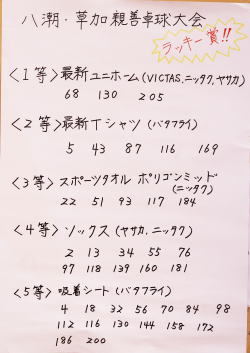 八潮・草加親善卓球大会
ラッキー賞!!
<1等>最新ユニホーム(VICTAS,ニッタク,ヤサカ)
68 130 205
<2等>最新Tシャツ(バタフライ)
5 43 87 116 169
<3等>スポーツタオル ポリゴンミッド
(ニッタク)
22 51 93 117 184
<4等>ソックス(ヤサカ,ニッタク)
2 13 34 55 76
97 118 139 160 181
<5等>吸着シート(バタフライ)
4 18 32 56 70 84 98
112 116 130 144 158 172
186 200